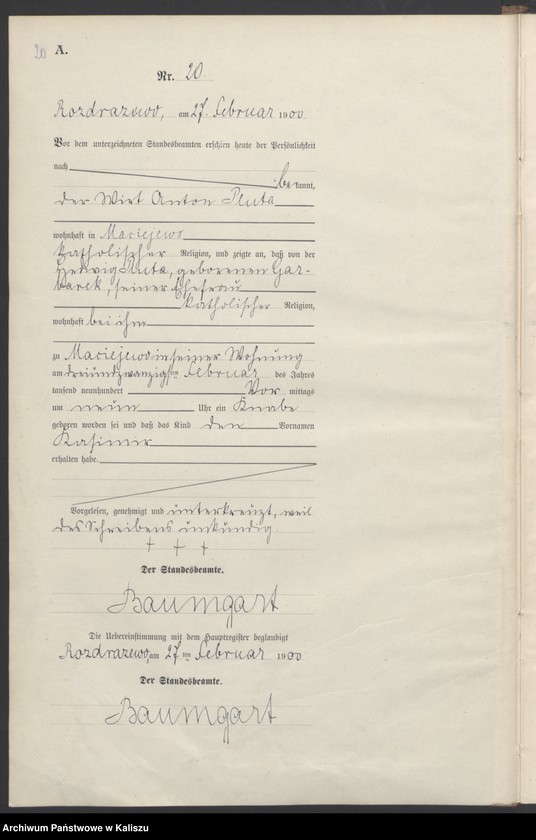 20 A.
Nr. 20.
Rozdrazewo, am 27. Februar 1900
Vor dem unterzeichneten Standesbeamten erschien heute der Persönlichkeit
nach
be kannt,
der Wirt Anton Pluta
wohnhaft in Maciejewo
katholischer Religion, und zeigte an, daß von der
Hedwig Pluta, geborenen Gar-
barek, seiner Ehefrau
katholischer Religion,
wohnhaft bei ihm
zu Maciejewo in seiner Wohnung
am dreiundzwanzigsten Februar des Jahres
tausend neunhundert Vor mittags
um neun Uhr ein Knabe
geboren worden sei und daß das Kind den Vornamen
Kasimir
erhalten habe.
Vorgelesen, genehmigt und unterkreuzt, weil
des Schreibens unkundig.
+ + +
Der Standesbeamte.
Baumgart
Die Uebereinstimmung mit dem Hauptregister beglaubigt
Rozdrazewo, am 27 ten Februar 1900
Der Standesbeamte.
Baumgart
Archiwum Państwowe w Kaliszu